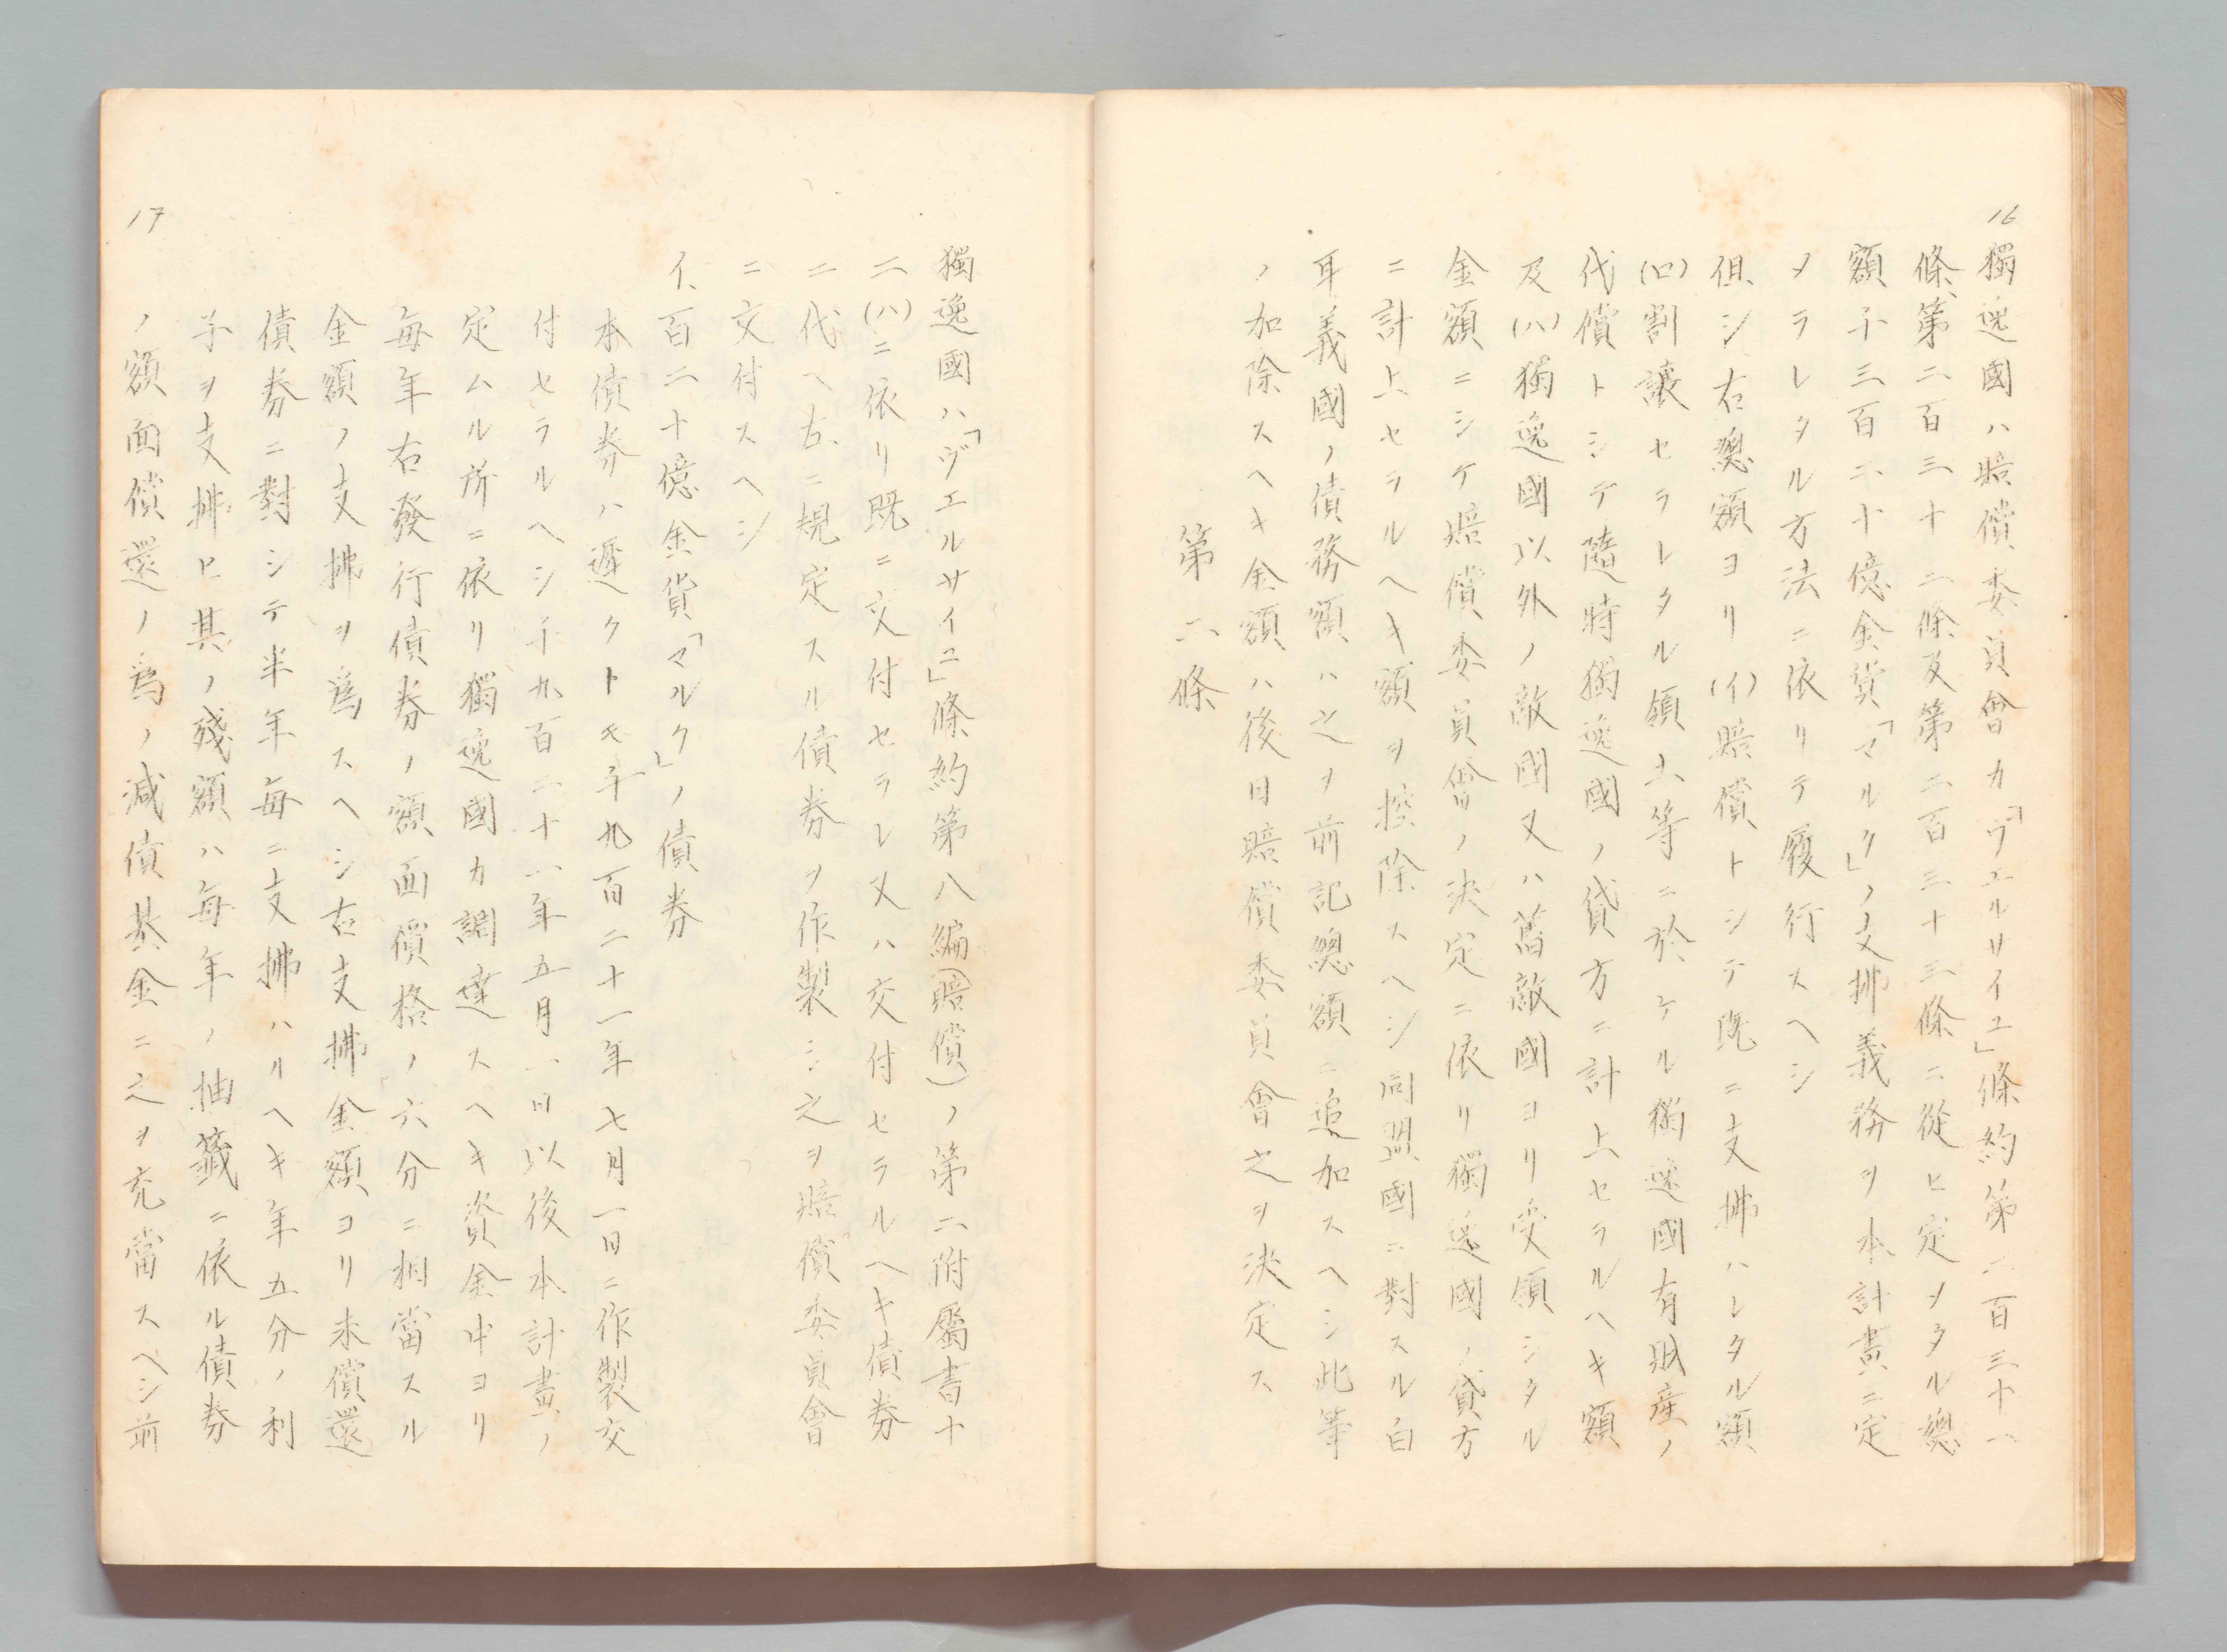 16
獨逸國ハ賠償委員會カ「ヴエルサイユ」條約第二百三十一
條、第二百三十二條及第二百三十三條ニ從ヒ定メタル總
額千三百二十億金貨「マルク」ノ支拂義務ヲ本計畫ニ定
メラレタル方法ニ依リテ履行スヘシ
但シ右總額ヨリ(イ)賠償トシテ既ニ支拂ハレタル額
(ロ)割讓セラレタル領土等ニ於ケル獨逸國有財産ノ
代償トシテ隨時獨逸國ノ貸方ニ計上セラルヘキ額
及(ハ)獨逸國以外ノ敵國又ハ舊敵國ヨリ受領シタル
金額ニシテ賠償委員會ノ決定ニ依リ獨逸國ノ貸方
ニ計上セラルヘキ額ヲ控除スヘシ同盟國ニ對スル白
耳義國ノ債務額ハ之ヲ前記總額ニ追加スヘシ此等
ノ加除スヘキ金額ハ後日賠償委員會之ヲ決定ス
第二條
獨逸國ハ「ヴエルサイユ」條約第八編(賠償)ノ第二附屬書十
二(ハ)ニ依リ既ニ交付セラレ又ハ交付セラルヘキ債券
ニ代ヘ左ニ規定スル債券ヲ作製シ之ヲ賠償委員會
ニ交付スヘシ
イ、百二十億金貨「マルク」ノ債券
本債券ハ遲クトモ千九百二十一年七月一日ニ作製交
付セラルヘシ千九百二十一年五月一日以後本計畫ノ
定ムル所ニ依リ獨逸國カ調達スヘキ資金中ヨリ
毎年右發行債券ノ額面價格ノ六分ニ相當スル
金額ノ支拂ヲ爲スヘシ右支拂金額ヨリ未償還
債券ニ對シテ半年毎ニ支拂ハルヘキ年五分ノ利
子ヲ支拂ヒ其ノ殘額ハ毎年ノ抽籤ニ依ル債券
ノ額面償還ノ爲ノ減債基金ニ之ヲ充當スヘシ前
17